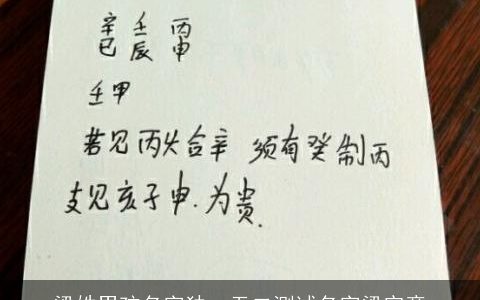 辛 壬 丙
巳 辰 申
壬甲
若见丙火合辛 须有癸制丙
支见亥子申.为贵.